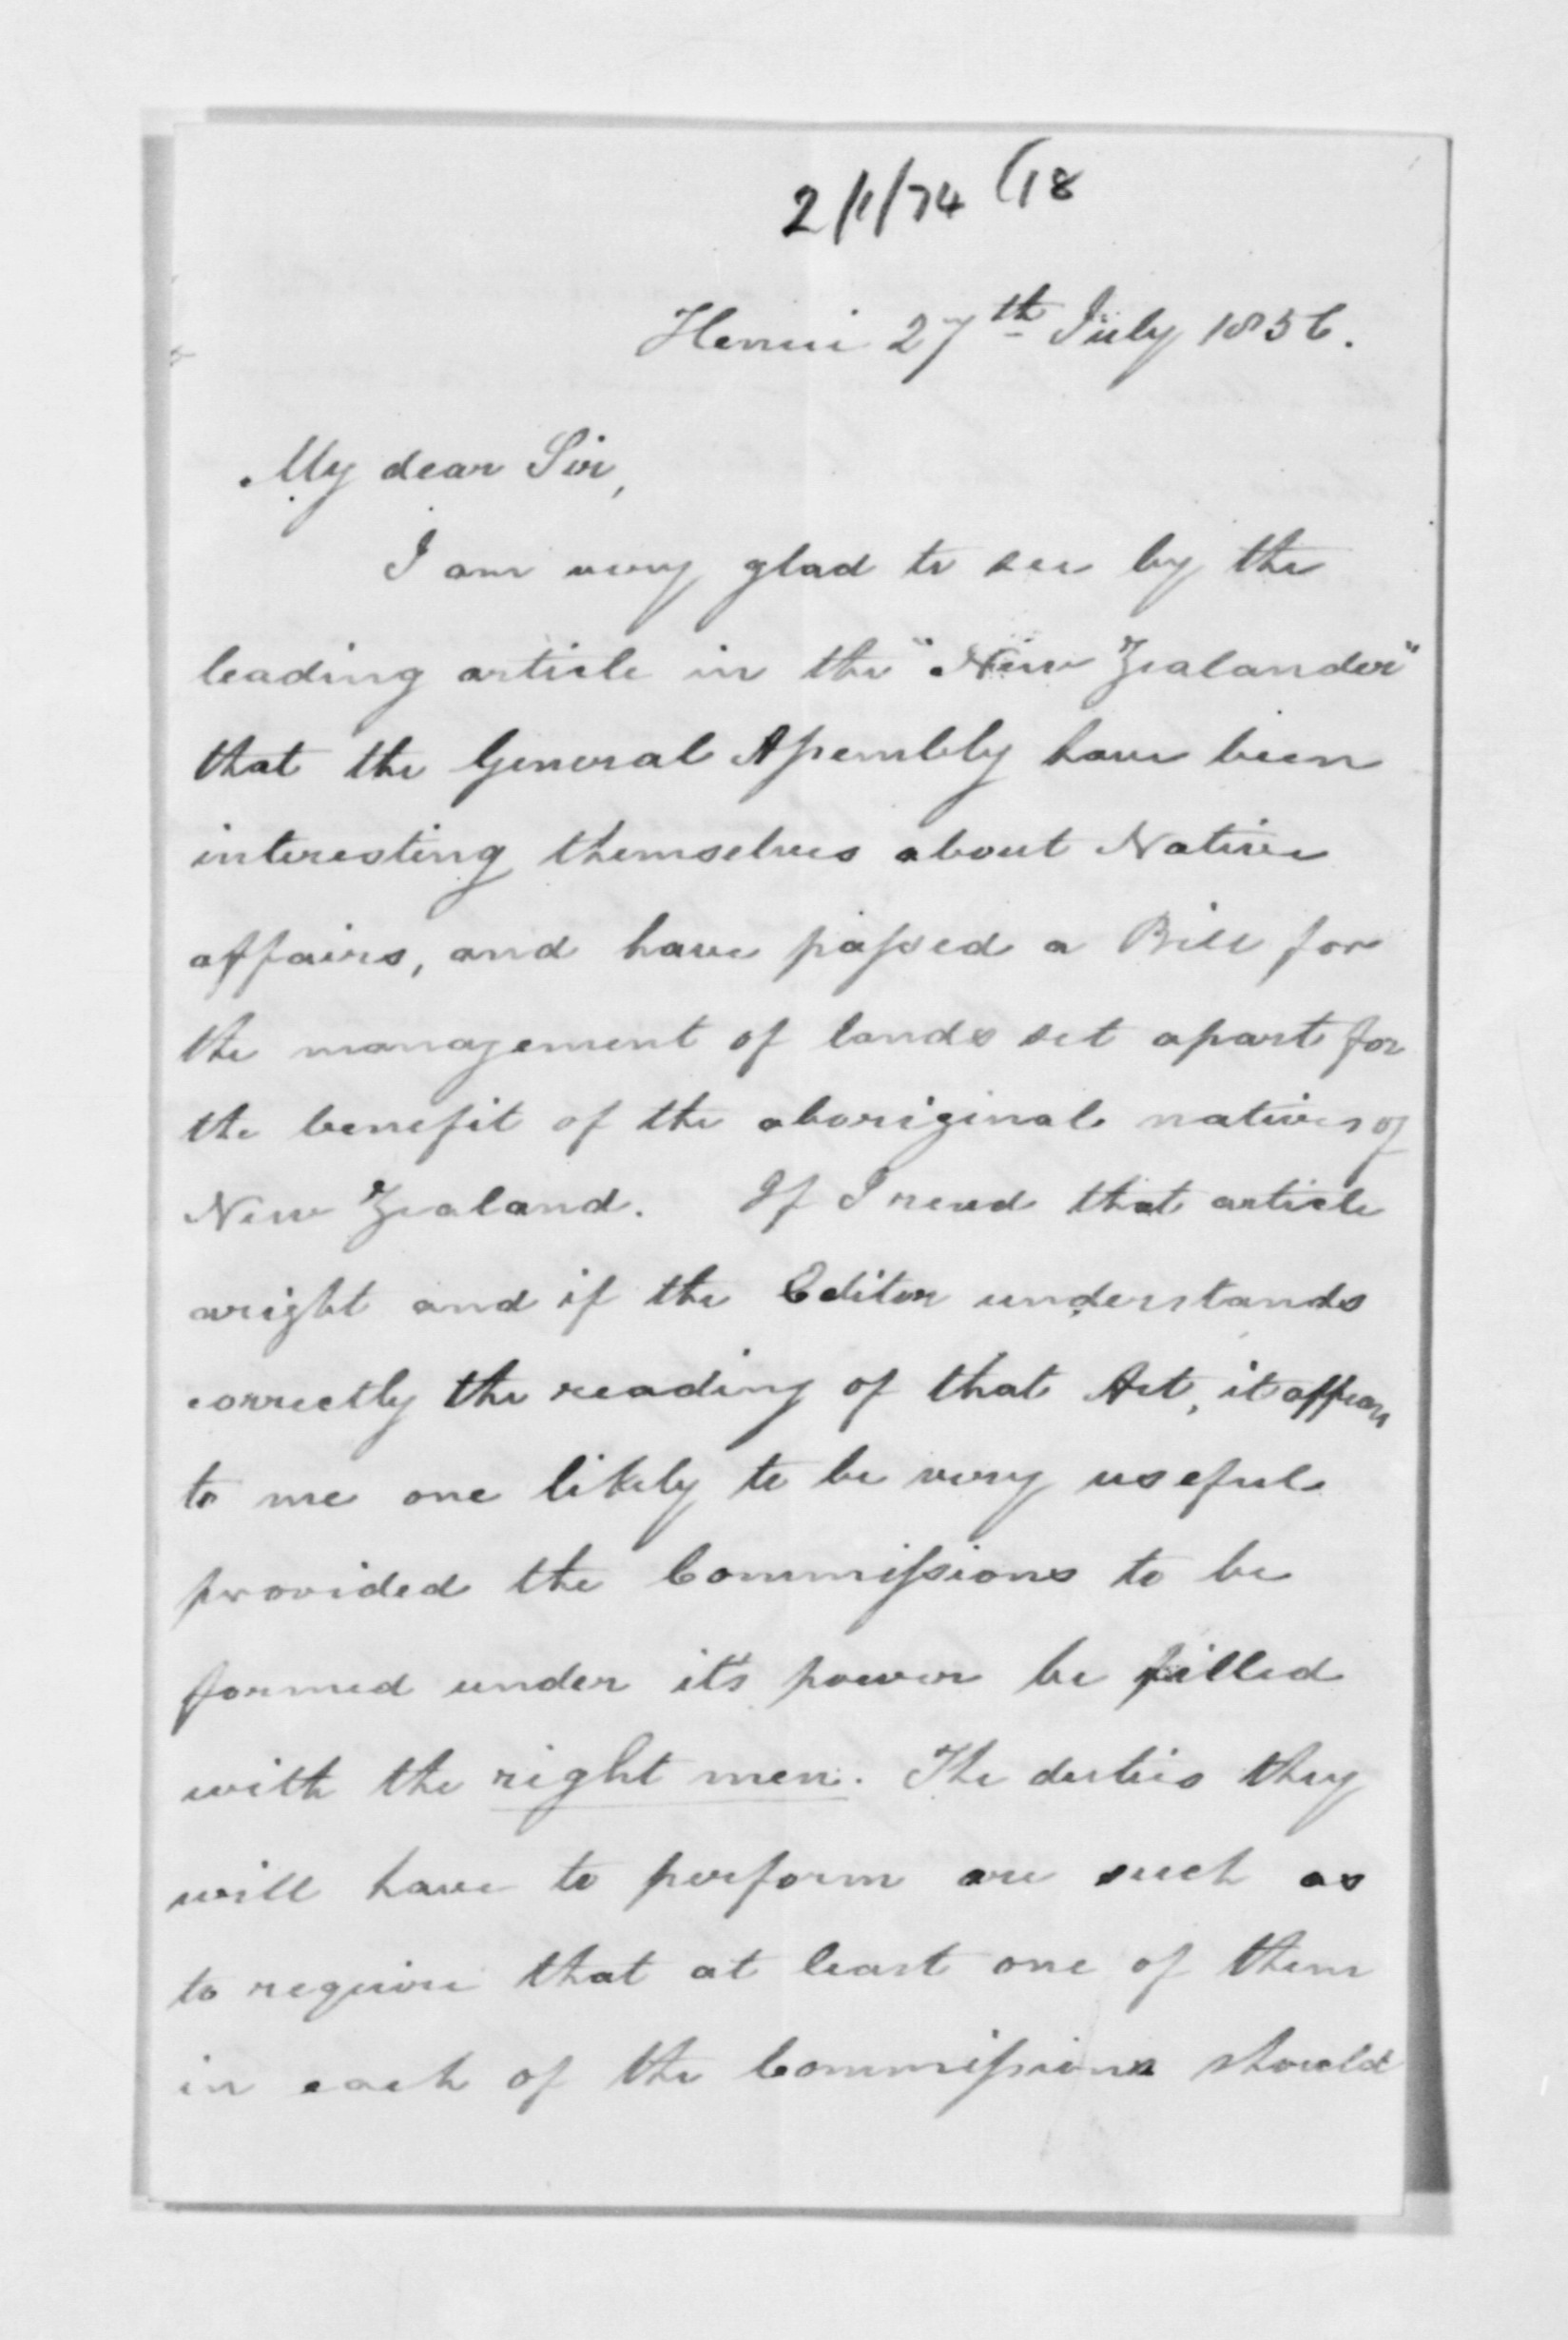 2/1/74 (18
Henui 27th July 1856.
My dear Sir,
I am very glad to see by the
leading article in the "New Zealander"
that the General Assembly have been
interesting themselves about Native
affairs, and have passed a Bill for
the management of lands set apart for
the benefit of the aboriginal natives of
New Zealand. If I read that article
aright and if the Editor understands
correctly the reading of that Act, it appears
to me one likely to be very useful
provided the Commissions to be
formed under it's power be filled
with the right men. The duties they
will have to perform are such as
to require that at least one of them
in each of the Commissions should